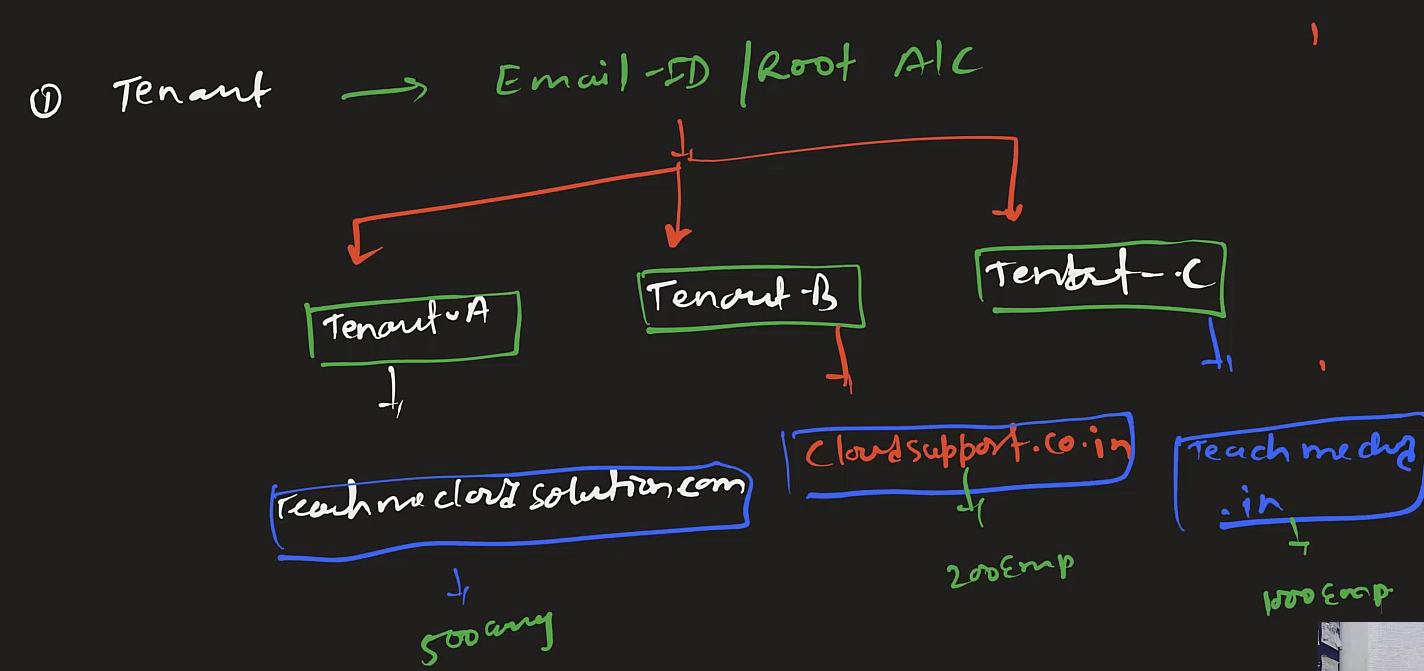 ① Tenant → Email-ID / Root A/C
Tenant-A
Tenant-B
Tenant-C
Teachmecloudsolution.com
Cloudsupport.co.in
Teach me
.in
500
200 Emp
1000 Emp